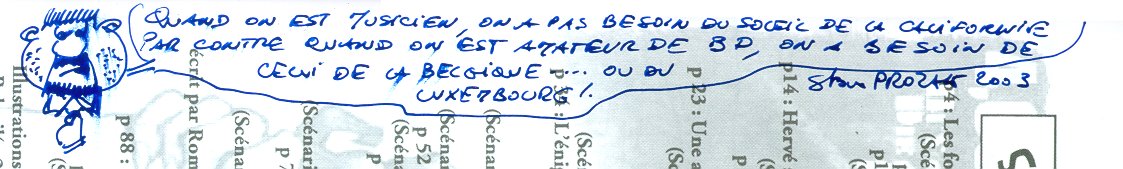 QUAND ON EST MUSICIEN, ON A PAS BESOIN DU SOLEIL DE LA CALIFORNIE
PAR CONTRE QUAND ON EST AMATEUR DE BD, ON A BESOIN DE
CELUI DE LA BELGIQUE .... OU DU
LUXEMBOURG !.
2003
p4 : Les fo
(Scé
p14 : Hervé
p 23 : Une a
(Sc
p 34 : L'éni
(Scé
(Scénar
(Scénar
p 52
(Scéna
(Scénari
(Scéna
écrit par Rom
p 88 :
Illustrations